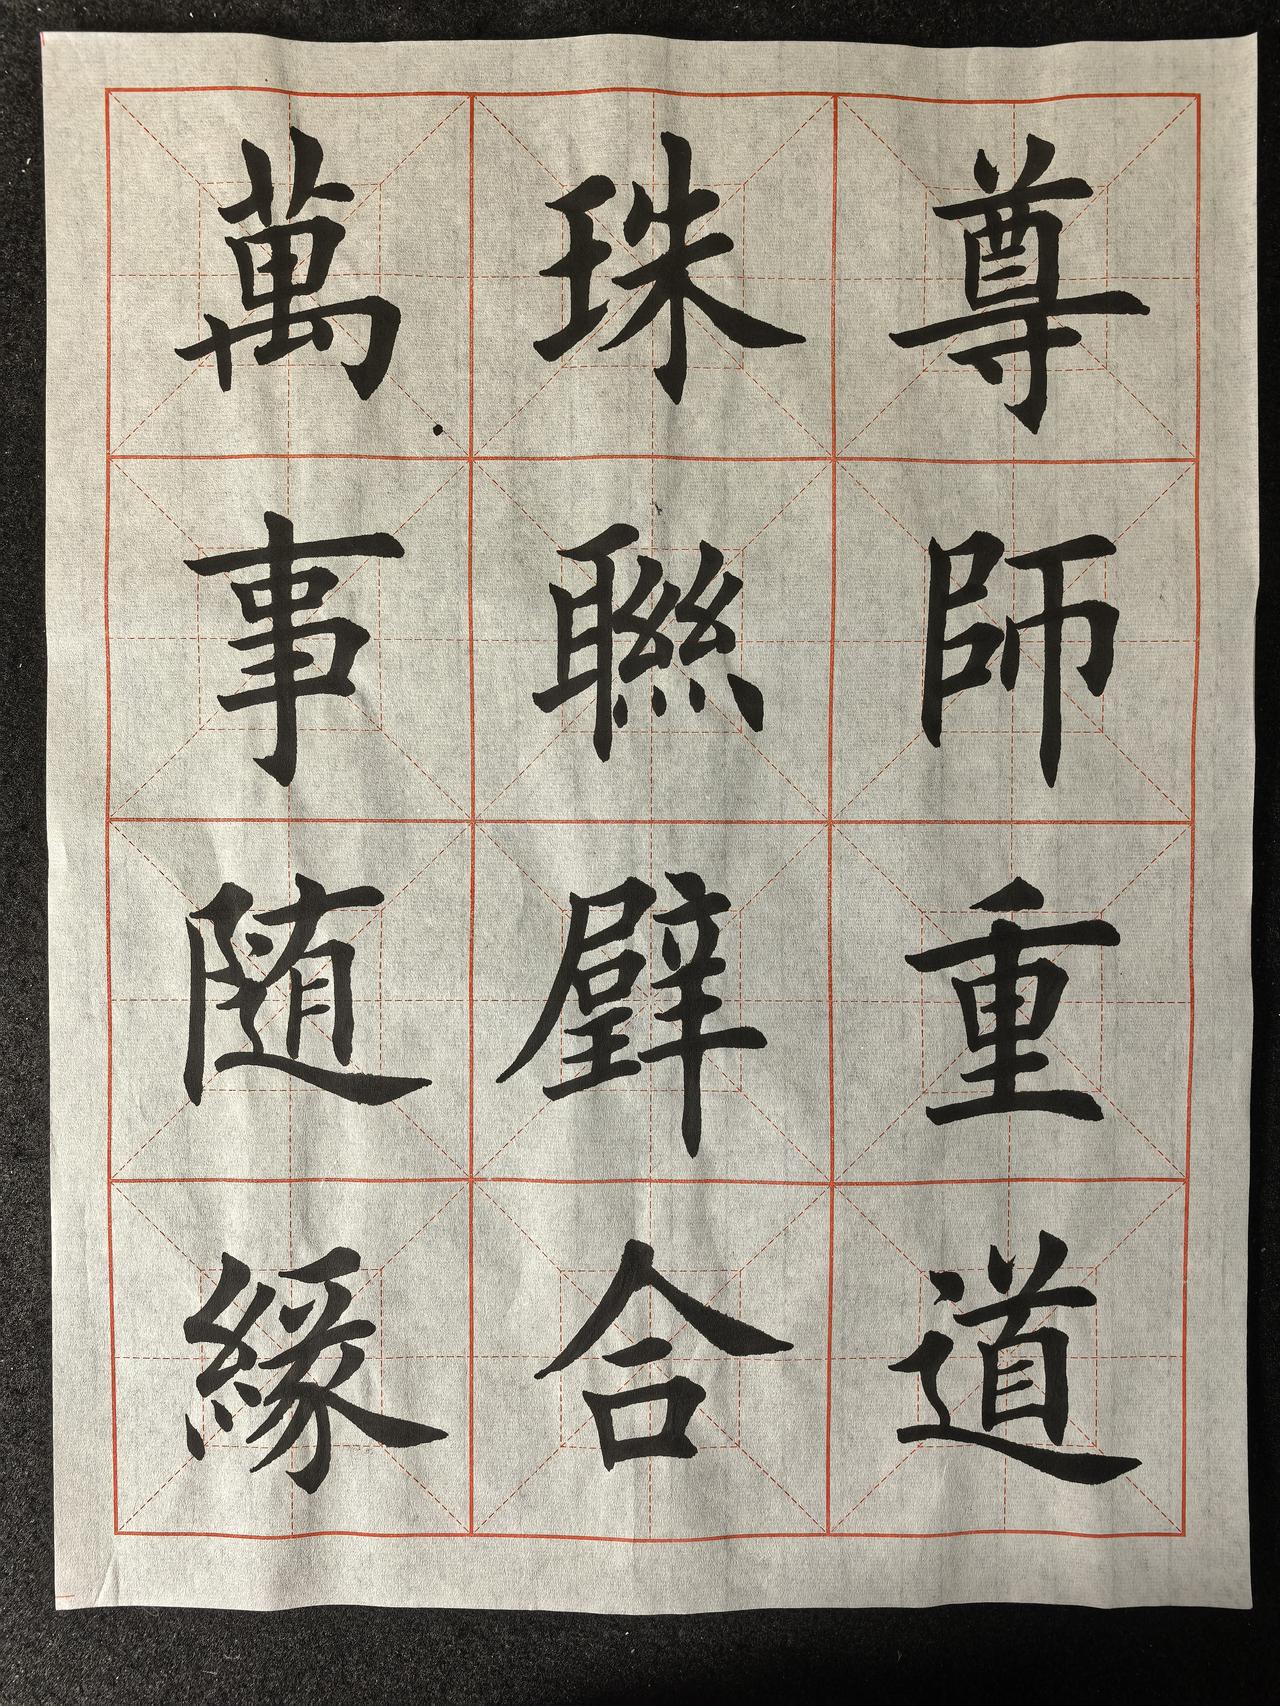 尊師重道
珠聯璧合
萬事随緣